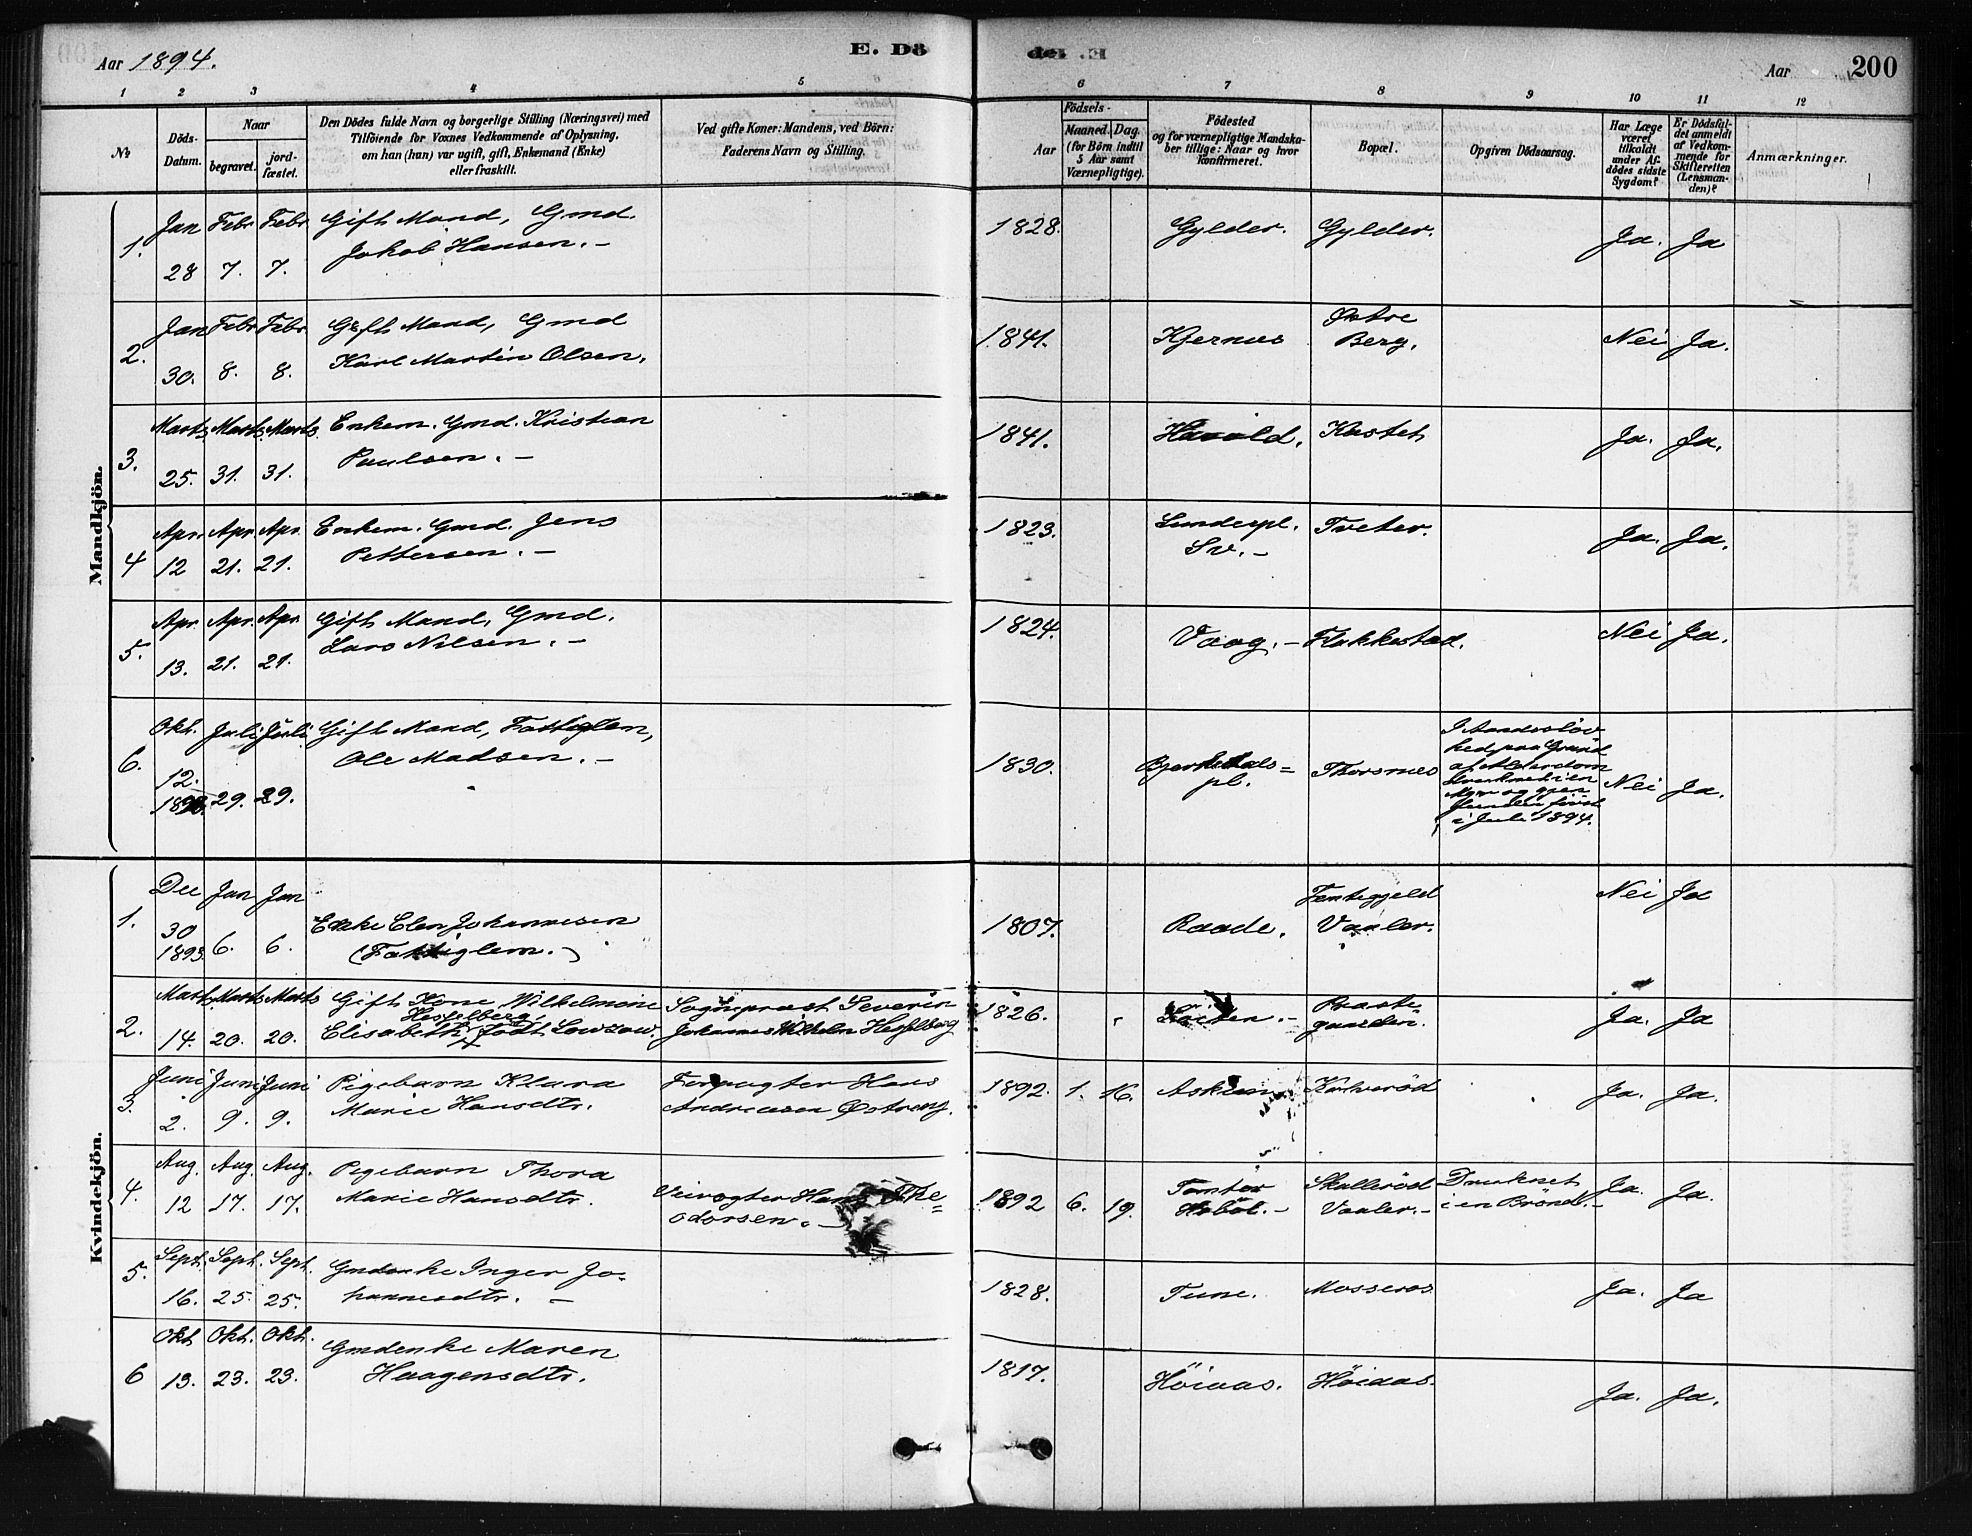 Aar 1894.
E. Dö
Aar
200
1 2 3 4 5
6 7 8 9 10 11 12
No
Döds-
Datum.
Naar
begravet.
jord-
fæstet.
Den Dödes fulde Navn og borgerlige Stilling (Næringsvei) med
Tilföiende for Voxnes Vedkommende af Oplysning,
om han (hun) var ugift, gift, Enkemand (Enke)
eller fraskilt.
Ved gifte Koner: Mandens, ved Börn:
Faderens Navn og Stilling.
Födsels-
Aar
Maaned. Dag.
(for Börn indtil
5 Aar samt
Værnepligtige).
Födested
og for værnepligtige Mandska-
ber tillige: Naar og hvor
konfirmeret.
Bopæl.
Opgiven Dödsaarsag.
Har Læge
været
tilkaldt
under Af-
dödes sidste
Sygdom?
Er Dödsfal-
det anmeldt
af Vedkom-
mende for
Skifteretten
(Lensman-
den)?
Anmærkninger.
Mandkjön.
1. Jan 28 Febr 7. Febr 7. Gift Mand, Gmd.
Jakob Hansen. –
1828. Gylder. Gylder. Ja. Ja
2. Jan 30. Febr 8. Febr 8. Gift Mand, Gmd
Karl Martin Olsen.
1841. Kjernes Østre
Berg. Nei Ja.
3. Marts 25. Marts 31. Marts 31. Enkem. Gmd. Kristian
Paulsen. –
1841. Kastet Ja. Ja.
4 Apr. 12 Apr. 21. Apr. 21. Enkem. Gmd. Jens
Pettersen. –
1823. Sunderpl.
Sv. – Tveter. Ja. Ja.
5. Apr. 13. Apr. 21. Apr. 21. Gift Mand, Gmd.
Lars Nilsen. –
1824. Vaag. – Flakkestad. Nei Ja.
6. Okt. 12. Juli 29. Juli 29. Gift Mand, Fattiglem,
Ole Madsen. –
1830. pl. Thorsnes
I Aandssløv-
hed paa Grund
af Alderdom
i en
Myr og gjen
først
i Juli 1894.
Nei Ja.
Kvindekjön.
1. Dec 30 1893. Jan 6. Jan 6. Enke Elen Johannesen
(Fattiglem.)
1807. Raade. Vaaler. Nei Ja
2. Marts 14. Marts 20. Marts 20. Gift Kone Wilhelmine
Hesselberg,
Elisabeth, født Lowzow
Sogneprest Severin
Johannes Wilhelm Hesselberg
1826. Præste
gaarden. Ja. Ja
3. Juni 2. Juni 9. Juni 9. Pigebarn Klara
Marie Hansdtr.
Forpagter Hans
Andreasen Østreng.
1892. 1. 16. Askim Ja. Ja.
4. Aug. 12 Aug. 17. Aug. 17. Pigebarn Thora
Marie Hansdtr.
Veivogter Hans The=
odorsen. –
1892 6. 19. Tomter
Hobøl. – Skallerød
Vaaler. – Druknet
i en Brönd. – Ja. Ja.
5. Sept. 16. Sept. 25. Sept. 25. Gmdenke Inger Jo-
hannesdtr. –
1828. Tune. Mosseros Ja. Ja
6 Okt. 13. Okt. 23. Okt. 23. Gmdenke Maren
Haagensdtr.
1817. Höiaas. Höiaas. Ja. Ja.